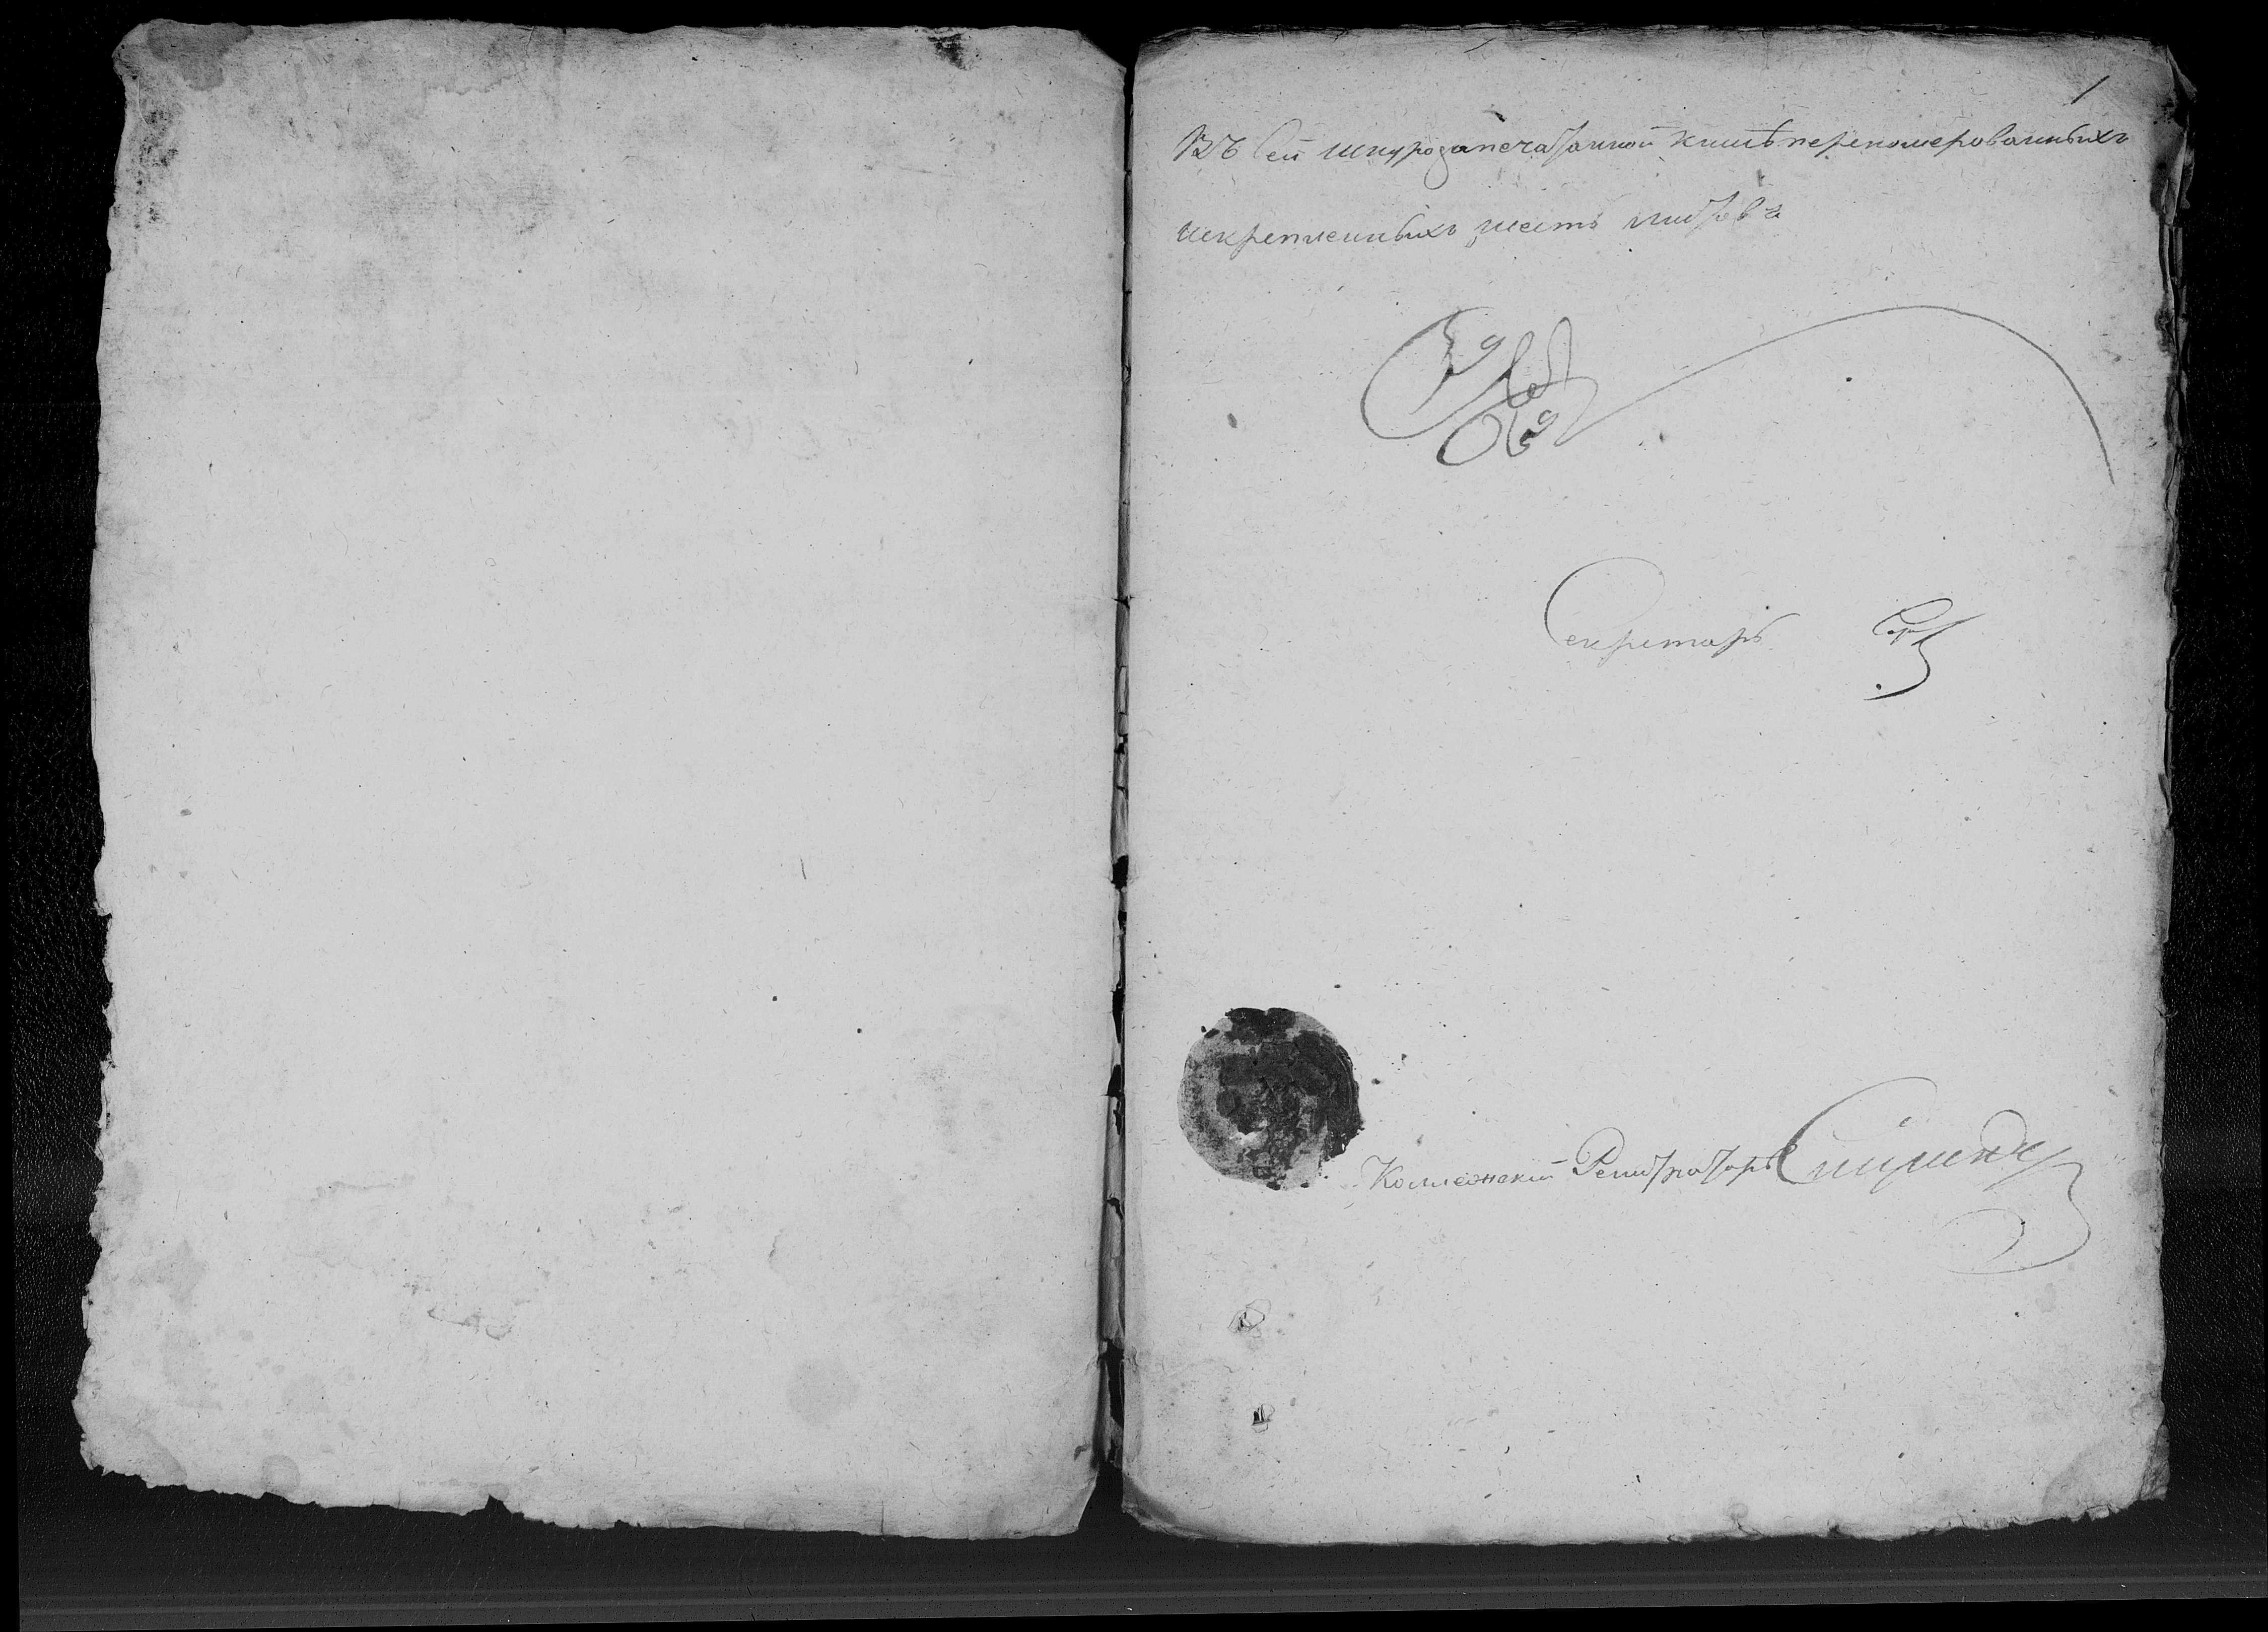 1
Въ сей шнурозапечатанной книгѣ переномерованныхъ
искрепленныхъ шесть листовъ
Секретарь
Коллежский Регистраторъ